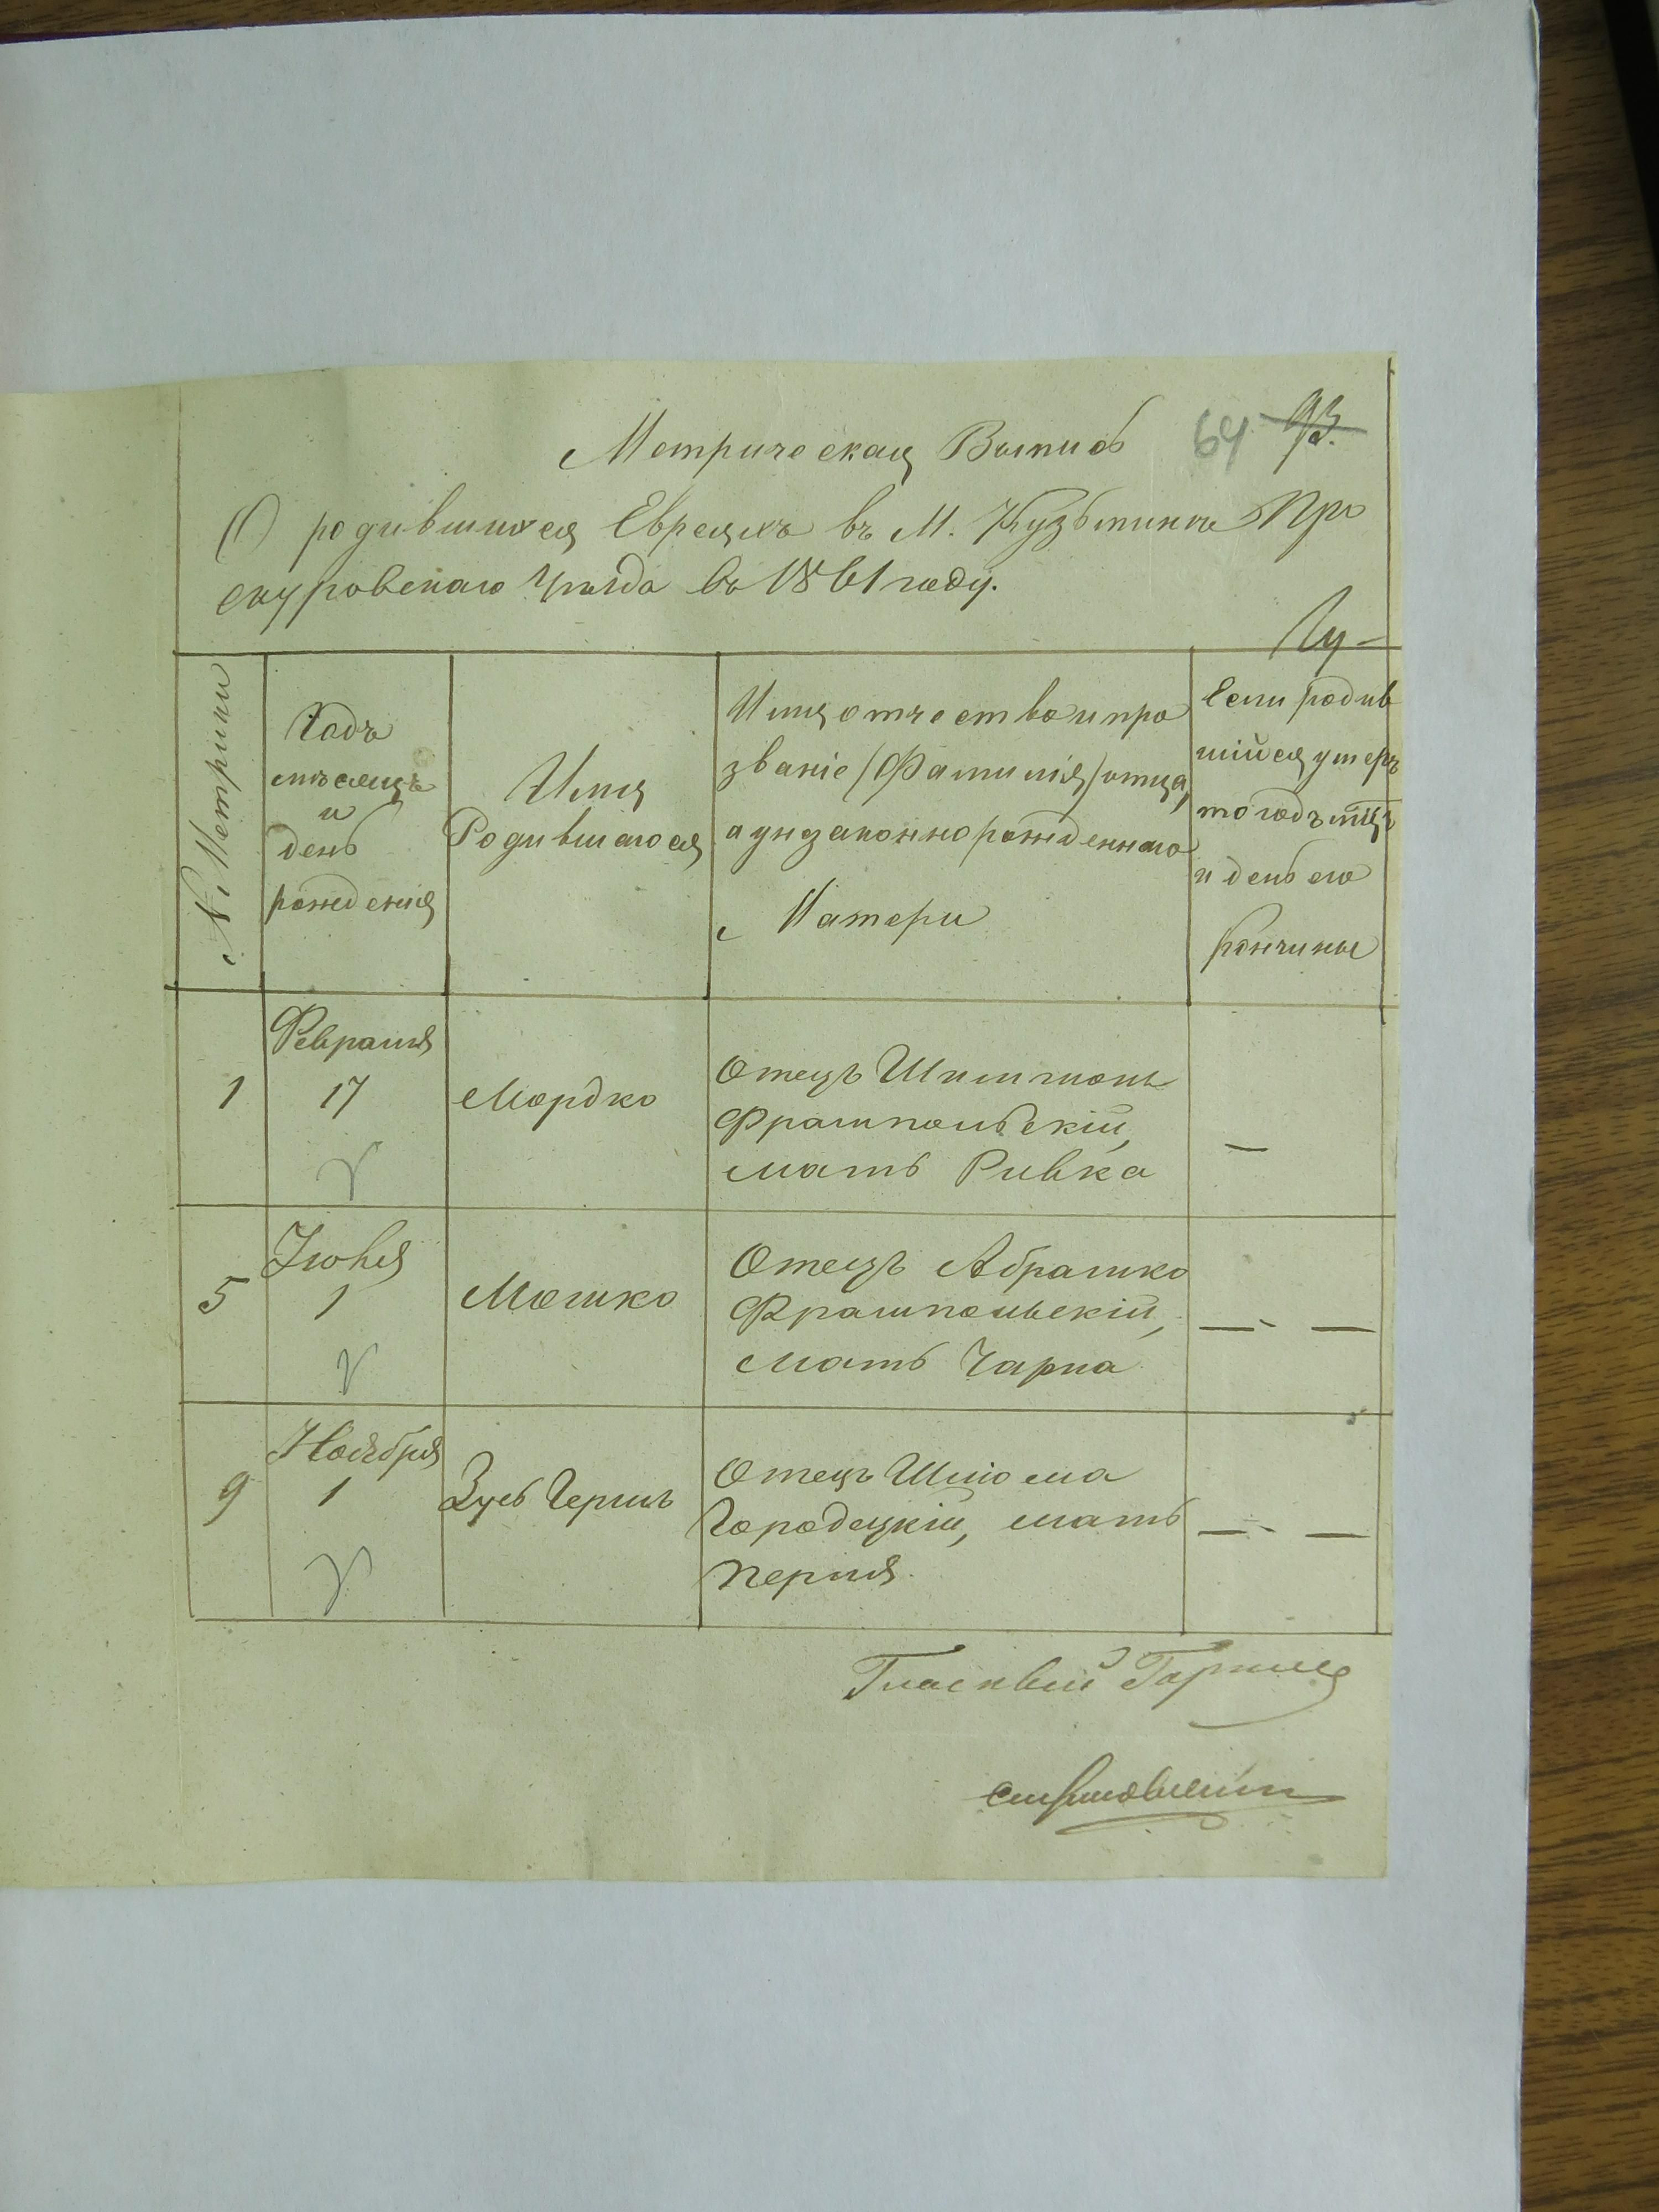 Метрическая Выпись 64 93.
О родившихся Евреяхъ въ М. Кузьминѣ Про
скуровскаго Уѣзда въ 1861 году.
№ Метрики
Годъ
мѣсяцъ
и
день
рожденія
Имя
Родившагося
Имя отчество и про
званіе /Фамилія/ отца,
а унезаконнорожденнаго
Матери
Если родив
шійся умеръ
то годъ мцъ
и день его
кончины
1
Февраля
17
Мордко
Отецъ Шлимонъ
Фрампольскій,
мать Ривка
—
5
Іюня
1
Мошко
Отецъ Абрамко
Фрампольскій,
мать Чарна
— —
9
Ноября
1
Зусь Гершъ
Отецъ Шлiома
Городецкій, мать
Перля.
— —